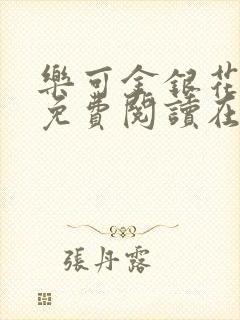 樂可金銀花
免費閱讀在
張丹露